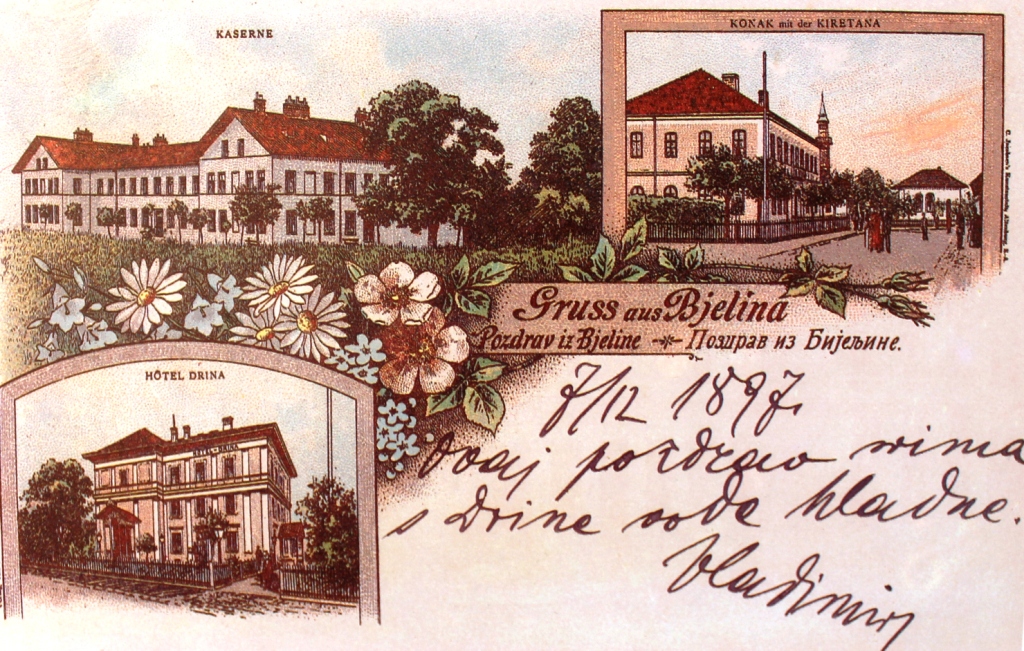 KASERNE
KONAK mit der KIRETANA
Gruss aus Bjelina
Pozdrav iz Bjeline Поздрав из Бијељине.
HÔTEL DRINA
HOTEL DRINA
7/12 1897.
Ovaj pozdrav svima
s Drine vode hladne.
Vladimir